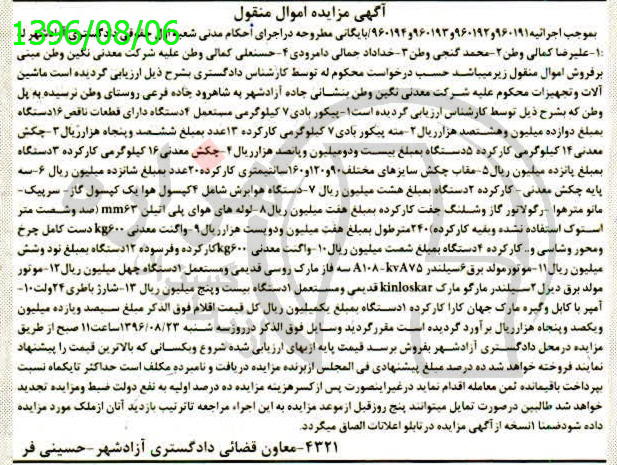 آگهی مزایده اموال منقول
1396/08/06
بموجب اجرائیه۹۶۰۱۹۱و۹۶۰۱۹۲و۹۶۰۱۹۳و۹۶۰۱۹۴/بایگانی مطروحه دراجرای احکام مدنی شعبه اول حقوقی دادگستری آزادشهر له
:۱-علیرضا کمالی وطن۲-محمد گنجی وطن۳-خداداد جمالی دامرودی۴-حسنعلی کمالی وطن علیه شرکت معدنی نگین وطن مبنی
برفروش اموال منقول زیرمیباشد حسب درخواست محکوم له توسط کارشناس دادگستری بشرح ذیل ارزیابی گردیده است ماشین
آلات وتجهیزات محکوم علیه شرکت معدنی نگین وطن بنشانی جاده آزادشهر به شاهرود جاده فرعی روستای وطن نرسیده به پل
وطن که بشرح ذیل توسط کارشناس ارزیابی گردیده است:۱-پیکور بادی۷ کیلوگرمی مستعمل ۴دستگاه دارای قطعات ناقص۱۶دستگاه
بمبلغ دوازده میلیون وهشتصد هزارریال۲-مته پیکور بادی۷ کیلوگرمی کارکرده ۱۳عدد بمبلغ ششصد وپنجاه هزارریال۳-چکش
معدنی۱۴ کیلوگرمی کارکرده ۵دستگاه بمبلغ بیست ودومیلیون وپانصد هزارریال۴-چکش معدنی۱۶ کیلوگرمی کارکرده ۳دستگاه
بمبلغ پانزده میلیون ریال۵-مقاب چکش سایزهای مختلف۹۰و۱۲۰و۱۶۰سانتیمتری کارکرده۲۰عدد بمبلغ شانزده میلیون ریال ۶-سه
پایه چکش معدنی-کارکرده ۲دستگاه بمبلغ هشت میلیون ریال ۷-دستگاه هوابرش شاغل ۴کپسول هوا یک کپسول گاز- سرپیک-
مانو مترهوا -رگولاتور گاز وشلنگ جفت کارکرده بمبلغ هفت میلیون ریال۸-لوله های هوای پلی اتیلن mm۶۳ (صد وشصت متر
استوک استفاده نشده وبقیه کارکرده)۲۴۰مترطول بمبلغ هفت میلیون ودویست هزارریال۹-واگنت معدنی kg۶۰۰ دست کامل چرخ
ومحور وشاسی و.. کارکرده ۴دستگاه بمبلغ شصت میلیون ریال۱۰-واگنت معدنی kg۶۰۰کارکرده وفرسوده ۱۲دستگاه بمبلغ نود وشش
میلیون ریال۱۱-موتورمولد برق۶سیلندر A۱۰۸-kvA۷۵ سه فاز مارک روسی قدیمی ومستعمل ۱دستگاه چهل میلیون ریال۱۲-موتور
مولد برق دیزل ۲سیلندر مارگو مارک kinloskar قدیمی ومستعمل ۱دستگاه بیست وپنج میلیون ریال ۱۳-شارژ باطری۲۴ولت۱۰-
آمپر با کابل وگیره مارک جهان کارا کارکرده ۱دستگاه بمبلغ یکمیلیون ریال کل قیمت اقلام فوق الذکر مبلغ سیصد ویازده میلیون
ویکصد وپنجاه هزارریال برآورد گردیده است مقررگردید وسایل فوق الذکر درروزسه شنبه ۱۳۹۶/۰۸/۲۳ساعت۱۱ صبح از طریق
مزایده درمحل دادگستری آزادشهر بفروش برسد قیمت پایه ازبهای ارزیابی شده شروع وبکسانی که بالاترین قیمت را پیشنهاد
نمایند فروخته خواهد شد ده درصد مبلغ پیشنهادی فی المجلس ازبرنده مزایده دریافت و نامبرده مکلف است حداکثر تایکماه نسبت
بپرداخت باقیمانده ثمن معامله اقدام نماید درغیراینصورت پس ازکسرهزینه مزایده ده درصد اولیه به نفع دولت ضبط ومزایده تجدید
خواهد شد طالبین درصورت تمایل میتوانند پنج روزقبل ازموعد مزایده به این اجراء مراجعه تاترتیب بازدید آنان ازملک مورد مزایده
داده شودضمنا ۱نسخه ازآگهی مزایده درتابلو اعلانات الصاق میگردد.
۴۳۲۱-معاون قضائی دادگستری آزادشهر-حسینی فر